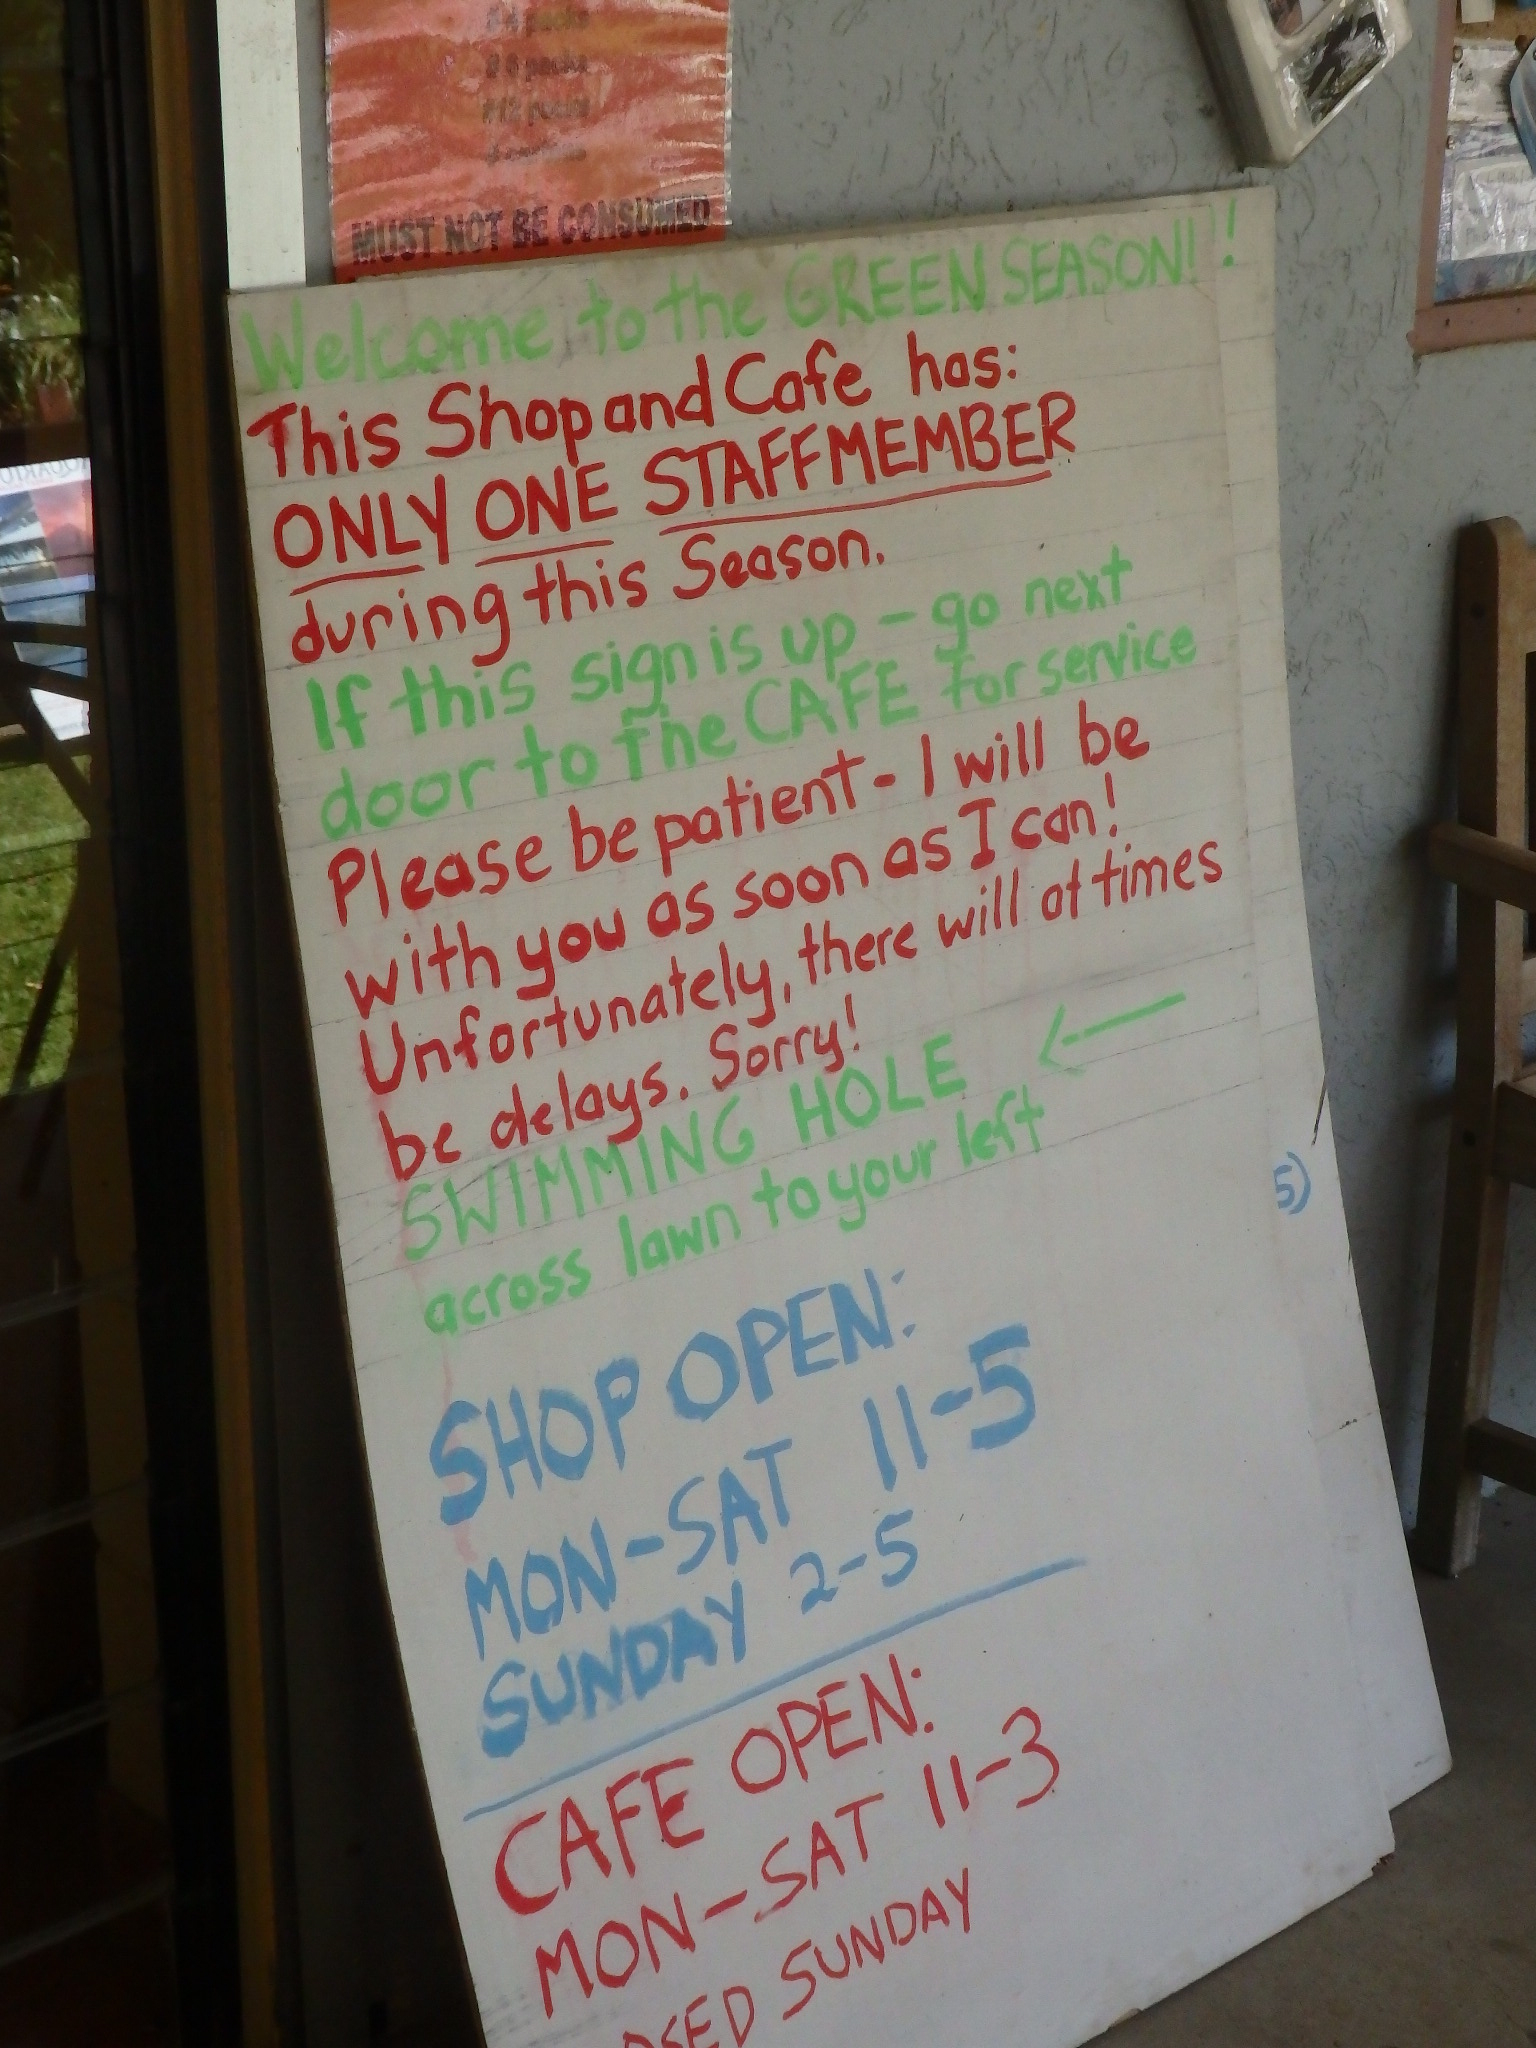 MUST NOT BE CONSUMED
Welcome to the GREEN SEASON!!
This Shop and Cafe has:
ONLY ONE STAFFMEMBER
during this Season.
If this sign is up - go next
door to the CAFE for service
Please be patient - I will be
with you as soon as I can!
Unfortunately, there will at times
be delays. Sorry!
SWIMMING HOLE ←
across lawn to your left
5)
SHOP OPEN:
MON-SAT 11-5
SUNDAY 2-5
CAFE OPEN:
MON-SAT 11-3
OSED SUNDAY